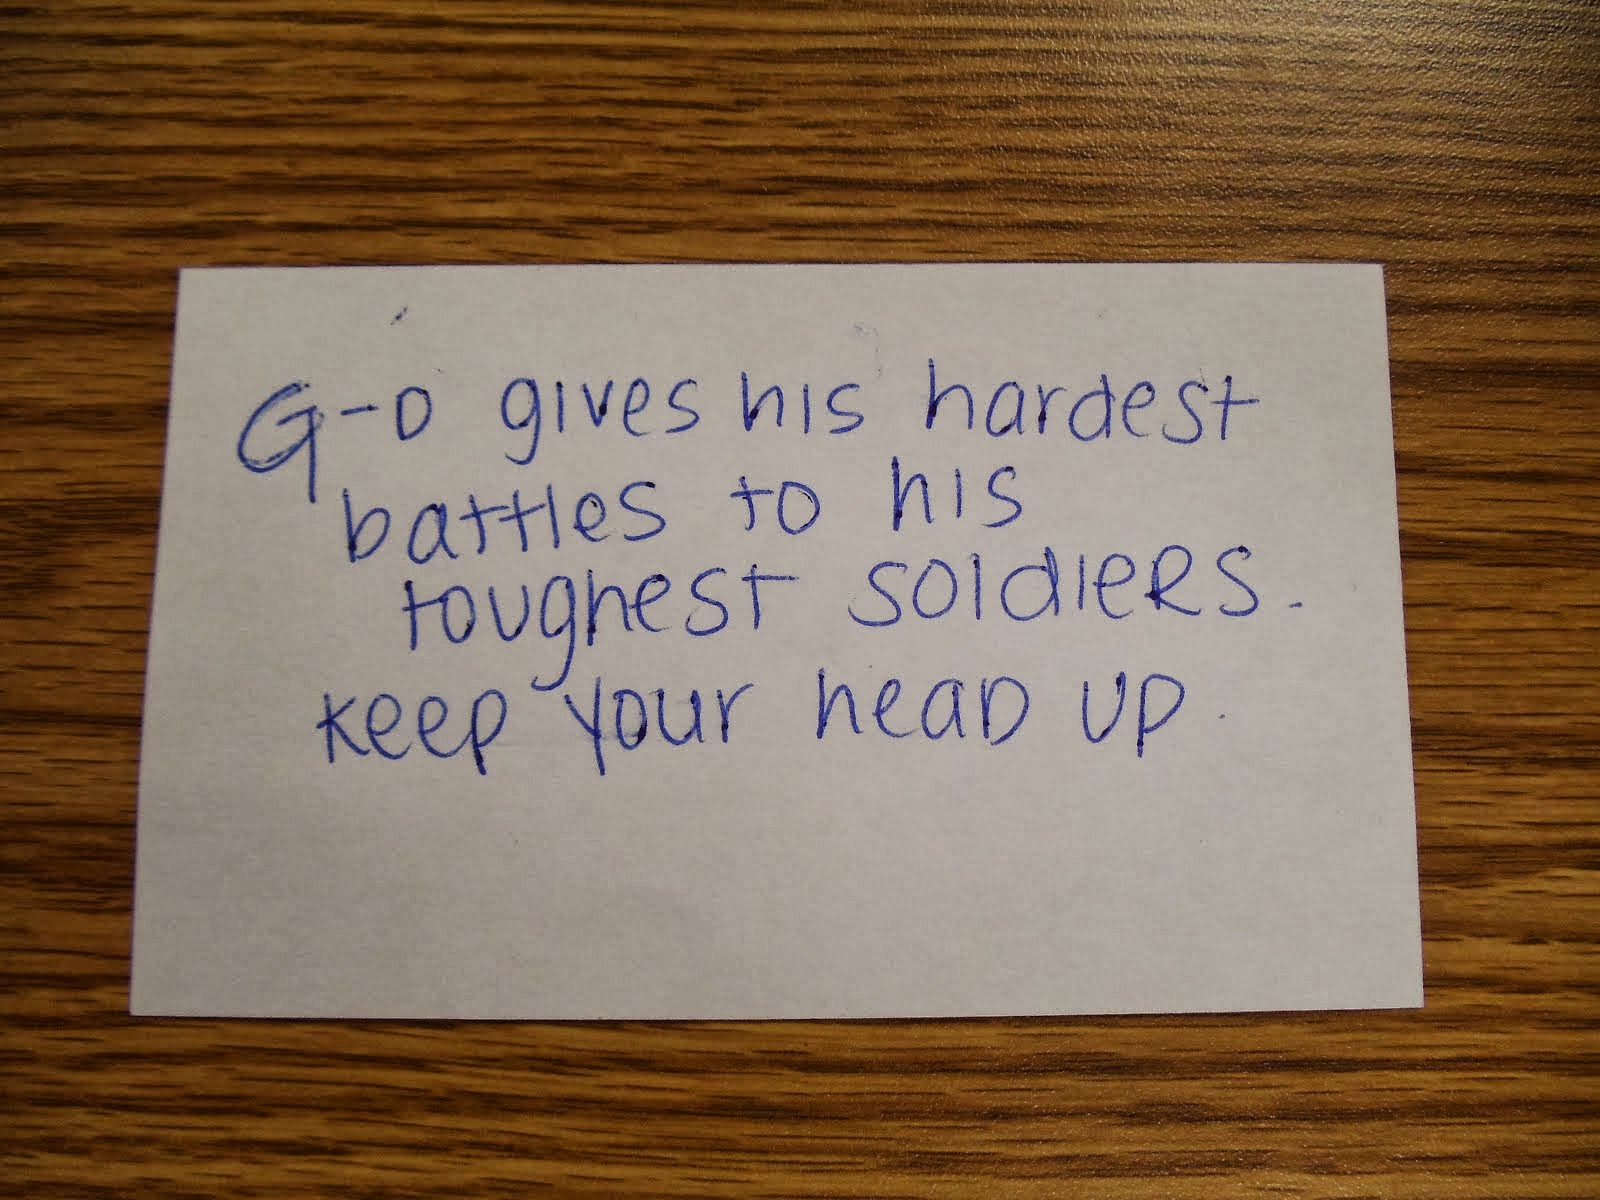 G-D gives his hardest
battles to his
toughest soldiers.
Keep your head up.